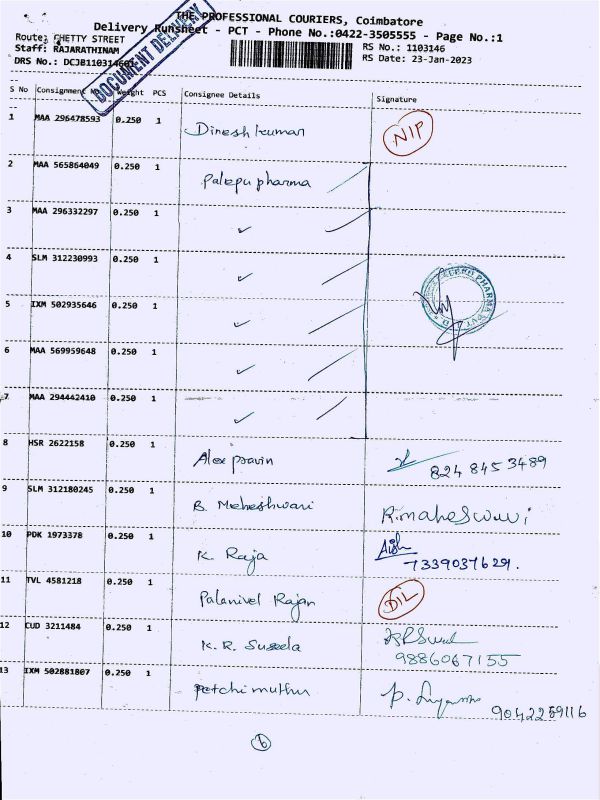 THE PROFESSIONAL COURIERS, Coimbatore
Delivery Runsheet - PCT - Phone No.:0422-3505555 - Page No.:1
Route: CHETTY STREET
RS No.: 1103146
Staff: RAJARATHINAM
RS Date: 23-Jan-2023
DRS No.: DCJB1103146
DOCUMENT DELIVERY
S No Consignment Weight PCS Consignee Details Signature
1 MAA 296478593 0.250 1 Dinesh kumar NIP
2 MAA 565864049 0.250 1 Palepu pharma
3 MAA 296332297 0.250 1 ✓
4 SLM 312230993 0.250 1 ✓
5 IXM 502935646 0.250 1 ✓
6 MAA 569959648 0.250 1 ✓
7 MAA 294442410 0.250 1 ✓
PHARMA PVT
8 HSR 2622158 0.250 1 Alex pravin 824 845 3489
9 SLM 312180245 0.250 1 B. Maheshwari R.maheswari
10 PDK 1973378 0.250 1 K. Raja 7339037629.
11 TVL 4581218 0.250 1 Palanivel Rajan DIL
12 CUD 3211484 0.250 1 K. R. Suseela
9886067155
13 IXM 502881807 0.250 1 Petchimuthu
9042259116
6